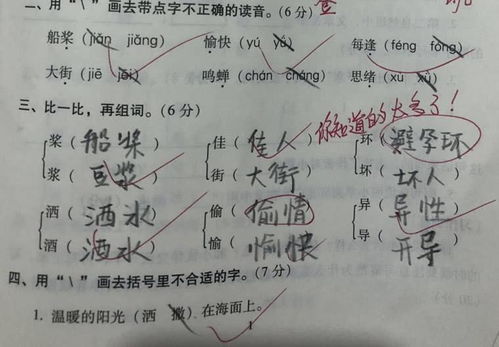 二、用“\”画去带点字不正确的读音。(6分)
船桨(jiǎn jiǎng) 愉快(yú yú) 每逢(féng fóng)
大街(jiē jēi) 鸣蝉(chán cháng) 思绪(xù xǜ)
三、比一比，再组词。(6分)
你知道的太多了！
桨(船桨 佳(佳人 环(避孕环
浆(豆浆 街(大街 坏(坏人
洒(洒水 偷(偷情 异(异性
酒(酒水 愉(愉快 导(开导
四、用“\”画去括号里不合适的字。(7分)
1. 温暖的阳光(洒 撒)在海面上。
1